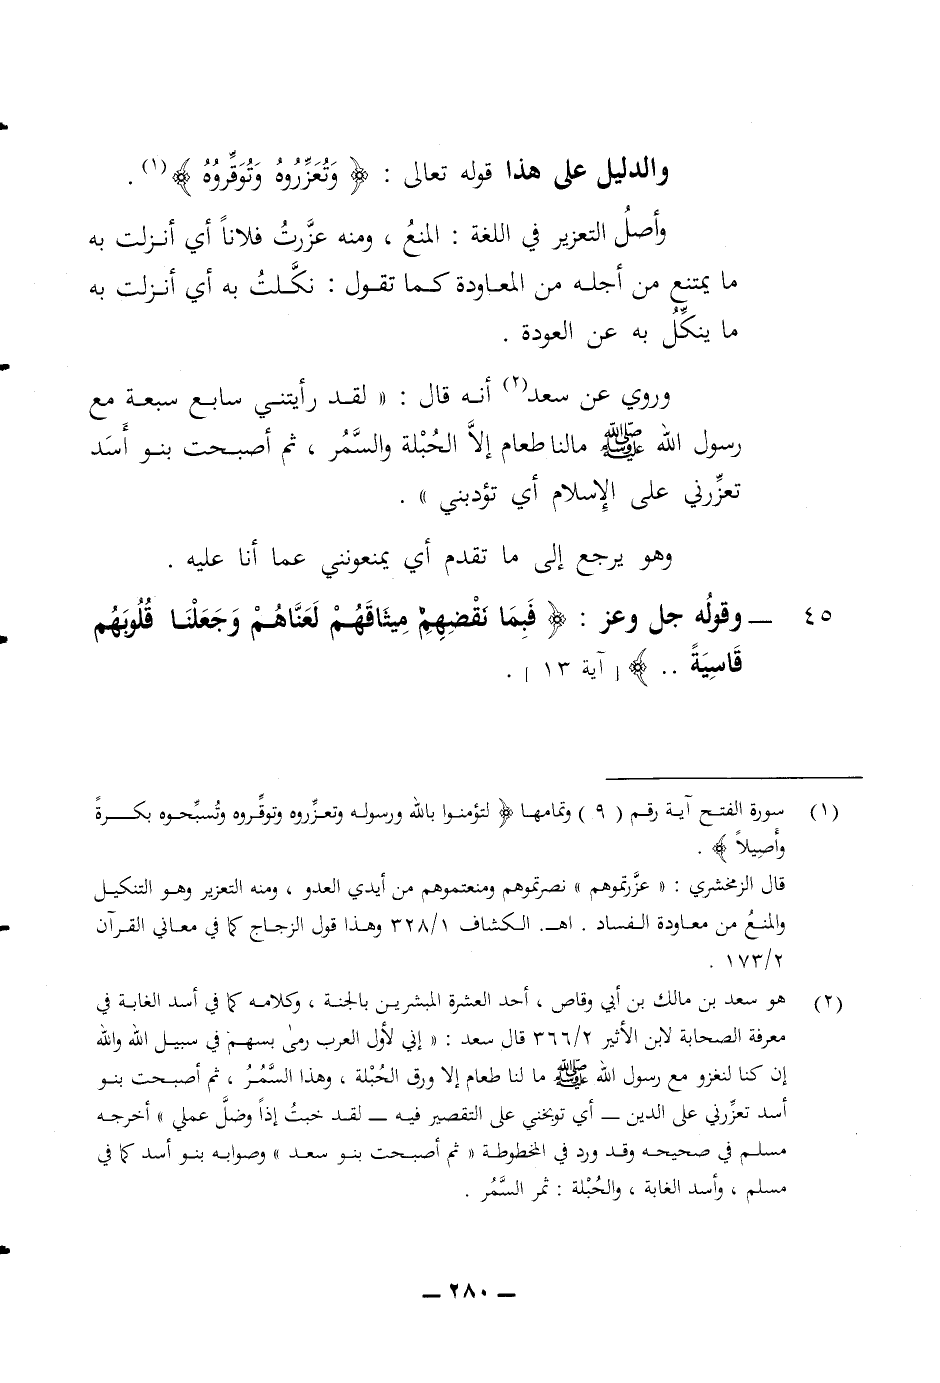 والدليل على هذا قوله تعالى : ﴿ وَتُعَزِّرُوهُ وَتُوَقِّرُوهُ ﴾(١) .
وأصلُ التعزير في اللغة : المنعُ ، ومنه عزَّرتُ فلاناً أي أنـزلت به
ما يمتنع من أجلـه من المعـاودة كـمـا تقـول : نكَّـلتُ به أي أنـزلت به
ما ينكِّلُ به عن العودة .
وروي عن سعد(٢) أنـه قال : « لقـد رأيتنـي سابـع سبعـة مع
رسول الله ﷺ مالنا طعام إلاَّ الحُبْلة والسَّمُر ، ثم أصبـحت بنـو أَسَد
تعزِّرني على الإسلام أي تؤدبني » .
وهو يرجع إلى ما تقدم أي يمنعونني عما أنا عليه .
٤٥ ــ وقولُه جل وعز : ﴿ فَبِمَا نَقْضِهِمْ مِيثَاقَهُـمْ لَعَنَّاهُـمْ وَجَعَلْنَـا قُلُوبَهُم
قَاسِيَةً .. ﴾ [ آية ١٣ ] .
(١) سورة الفتـح آيـة رقـم ( ٩ ) وتمامهـا ﴿ لتؤمنـوا بالله ورسولـه وتعزِّروه وتوقِّروه وتُسبِّحـوه بكـــرةً
وأَصِيلاً ﴾ .
قال الزمخشري : « عزَّرتموهم » نصرتموهم ومنعتموهم من أيدي العدو ، ومنه التعزير وهـو التنكيـل
والمنـعُ من معـاودة الـفسـاد . اهـ. الـكشـاف ٣٢٨/١ وهـذا قول الزجـاج كما في معـاني القـرآن
١٧٣/٢ .
(٢) هو سعد بن مالك بن أبي وقاص ، أحد العشرة المبشريـن بالجنة ، وكلامـه كما في أسد الغابـة في
معرفة الصحابة لابن الأثير ٣٦٦/٢ قال سعد : « إني لأول العرب رمىٰ بسهـم في سبيـل الله والله
إن كنا لنغزو مع رسول الله ﷺ ما لنا طعام إلا ورق الحُبْلة ، وهذا السَّمُـرُ ، ثم أصبـحت بنـو
أسد تعزِّرني على الدين ــ أي توبخني على التقصير فيـه ــ لقـد خبتُ إذاً وضلَّ عملي » أخرجـه
مسلـم في صحيحـه وقـد ورد في المخطوطـة « ثم أصبـحت بنـو سعـد » وصوابـه بنـو أسد كما في
مسلم ، وأسد الغابة ، والحُبْلة : ثمر السَّمُر .
ــ ٢٨٠ ــ